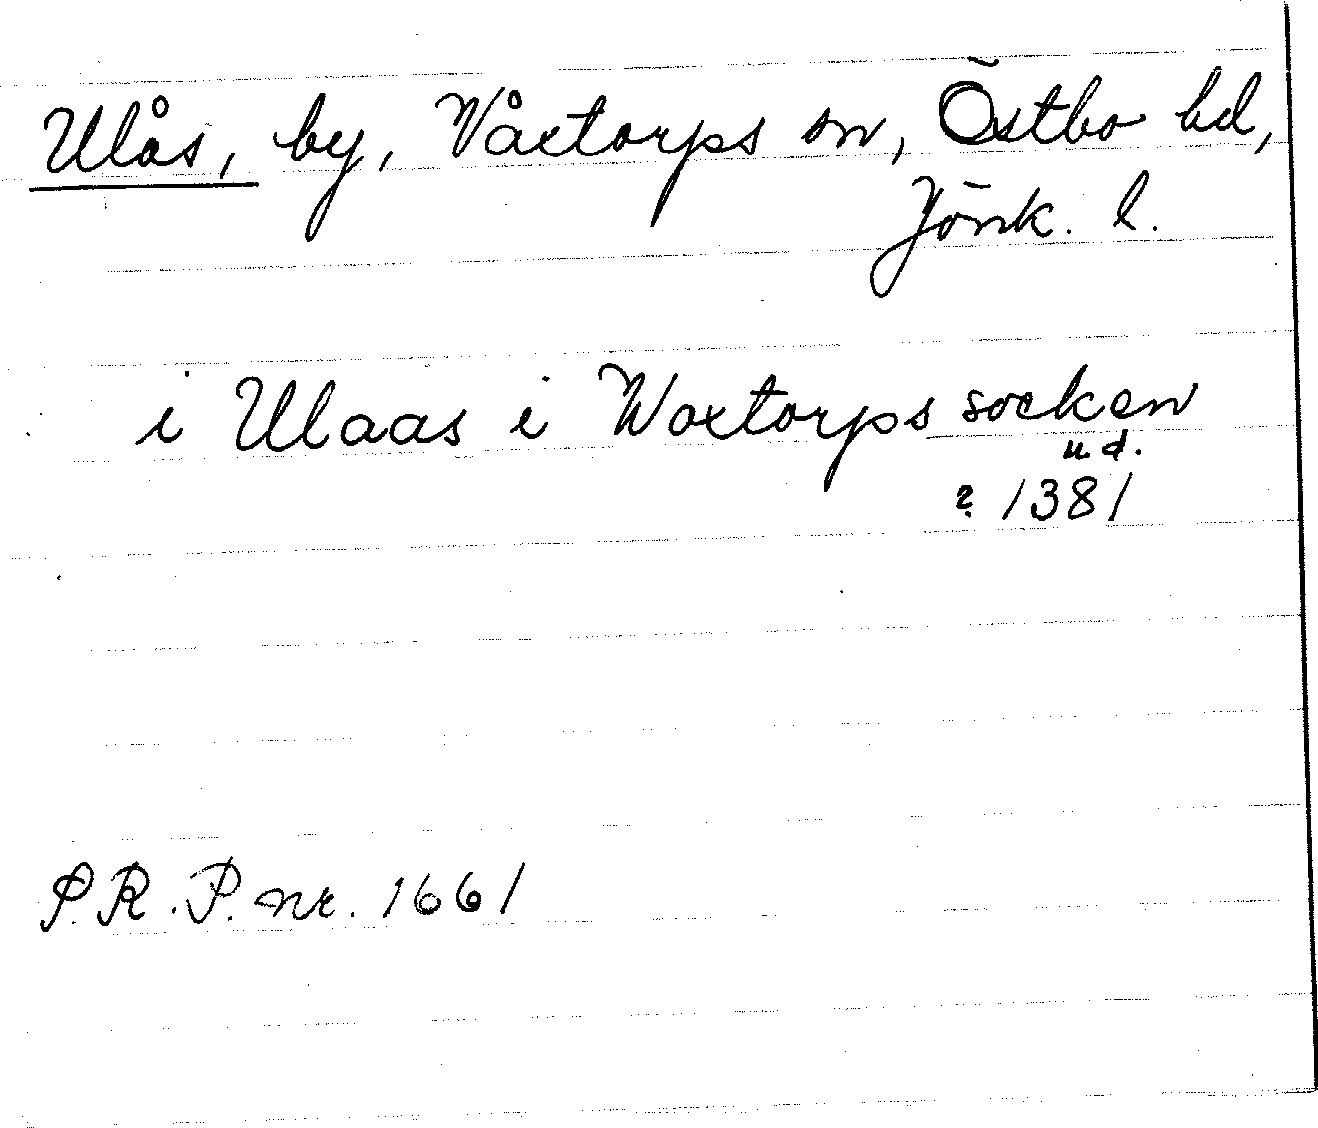 Ulås, by, Våxtorps sn, Östbo hd,
Jönk. l.
i Ulaas i Woxtorps socken
u.d.
? 1381
P.R.P. nr. 1661